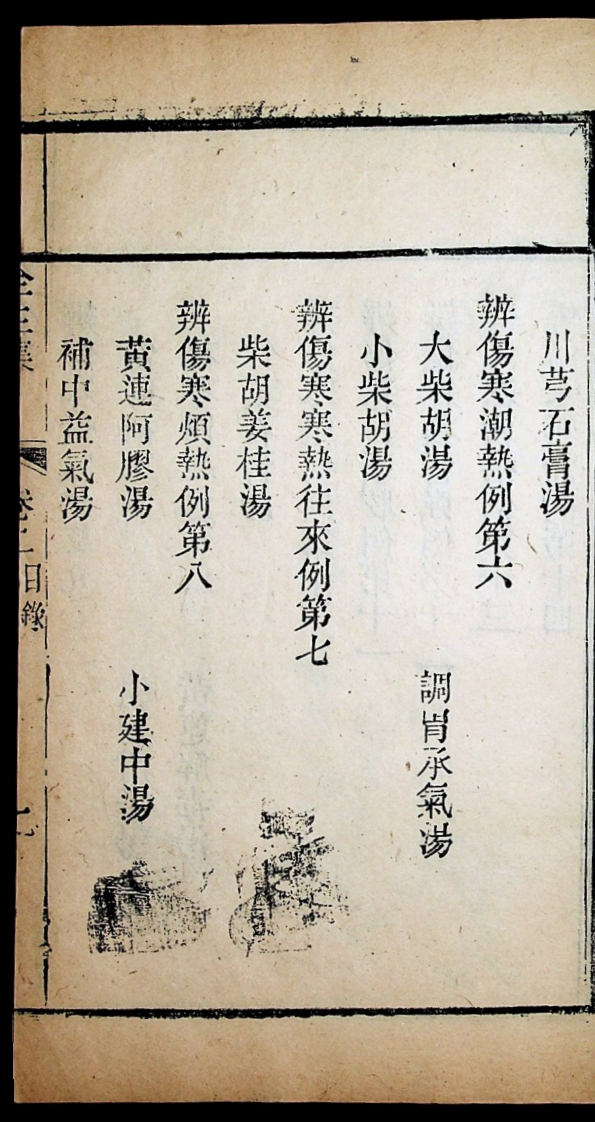 川芎石膏湯
辨傷寒潮熱例第六
大柴胡湯　調胃承氣湯
小柴胡湯
辨傷寒寒熱往來例第七
柴胡姜桂湯
辨傷寒煩熱例第八
黃連阿膠湯　小建中湯
補中益氣湯
全生集　卷二目錄　七